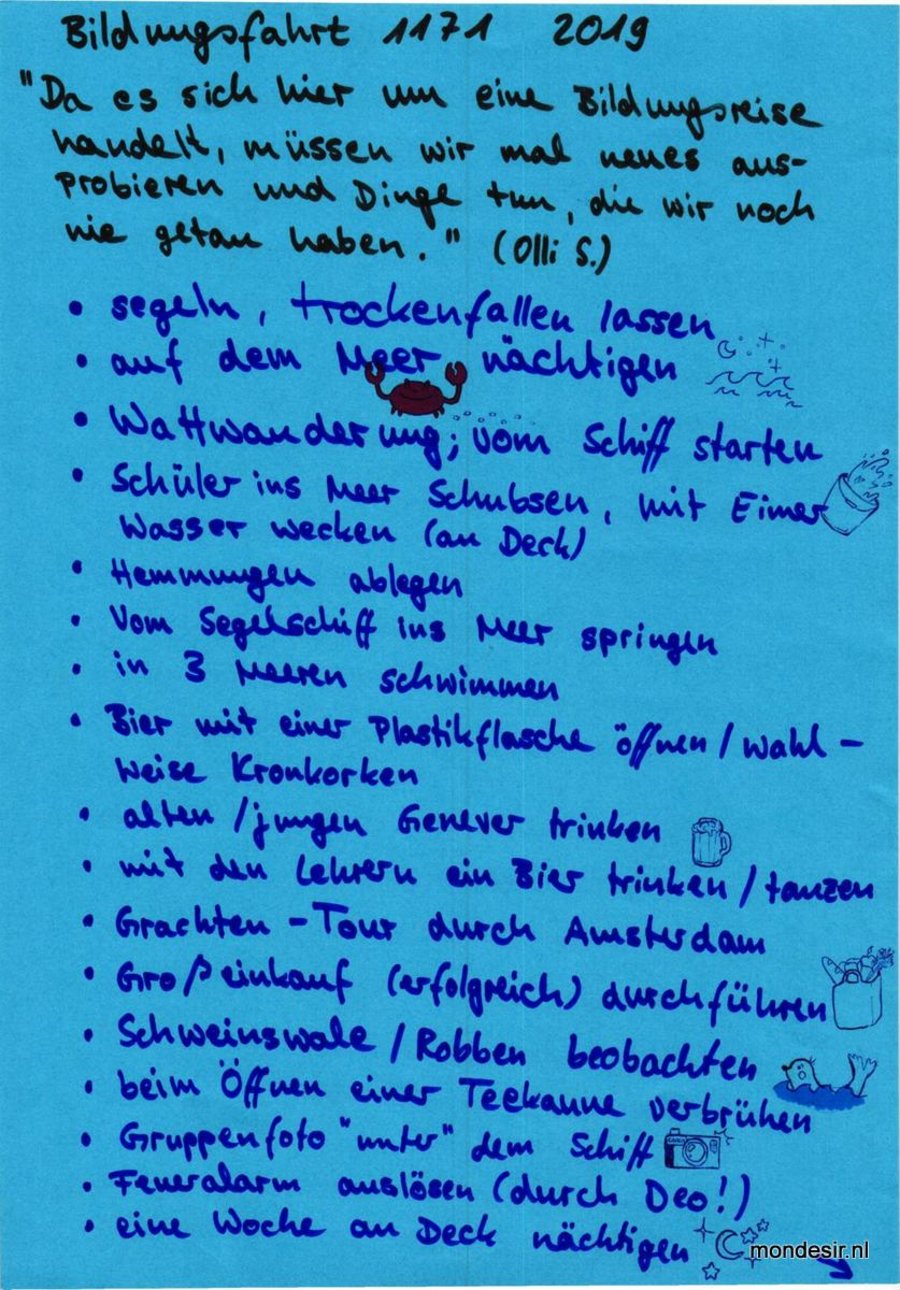 Bildungsfahrt 1171 2019
"Da es sich hier um eine Bildungsreise
handelt, müssen wir mal neues aus-
probieren und Dinge tun, die wir noch
nie getan haben." (Olli S.)
• segeln, trockenfallen lassen
• auf dem Meer nächtigen
• Wattwanderung; vom Schiff starten
• Schüler ins Meer Schubsen, mit Eimer
Wasser wecken (an Deck)
• Hemmungen ablegen
• Vom Segelschiff ins Meer springen
• in 3 Meeren schwimmen
• Bier mit einer Plastikflasche öffnen / wahl-
weise Kronkorken
• alten / jungen Genever trinken
• mit den Lehrern ein Bier trinken / tanzen
• Grachten-Tour durch Amsterdam
• Großeinkauf (erfolgreich) durchführen
• Schweinswale / Robben beobachten
• beim Öffnen einer Teekanne verbrühen
• Gruppenfoto "unter" dem Schiff
• Feueralarm auslösen (durch Deo!)
• eine Woche an Deck nächtigen
mondesir.nl